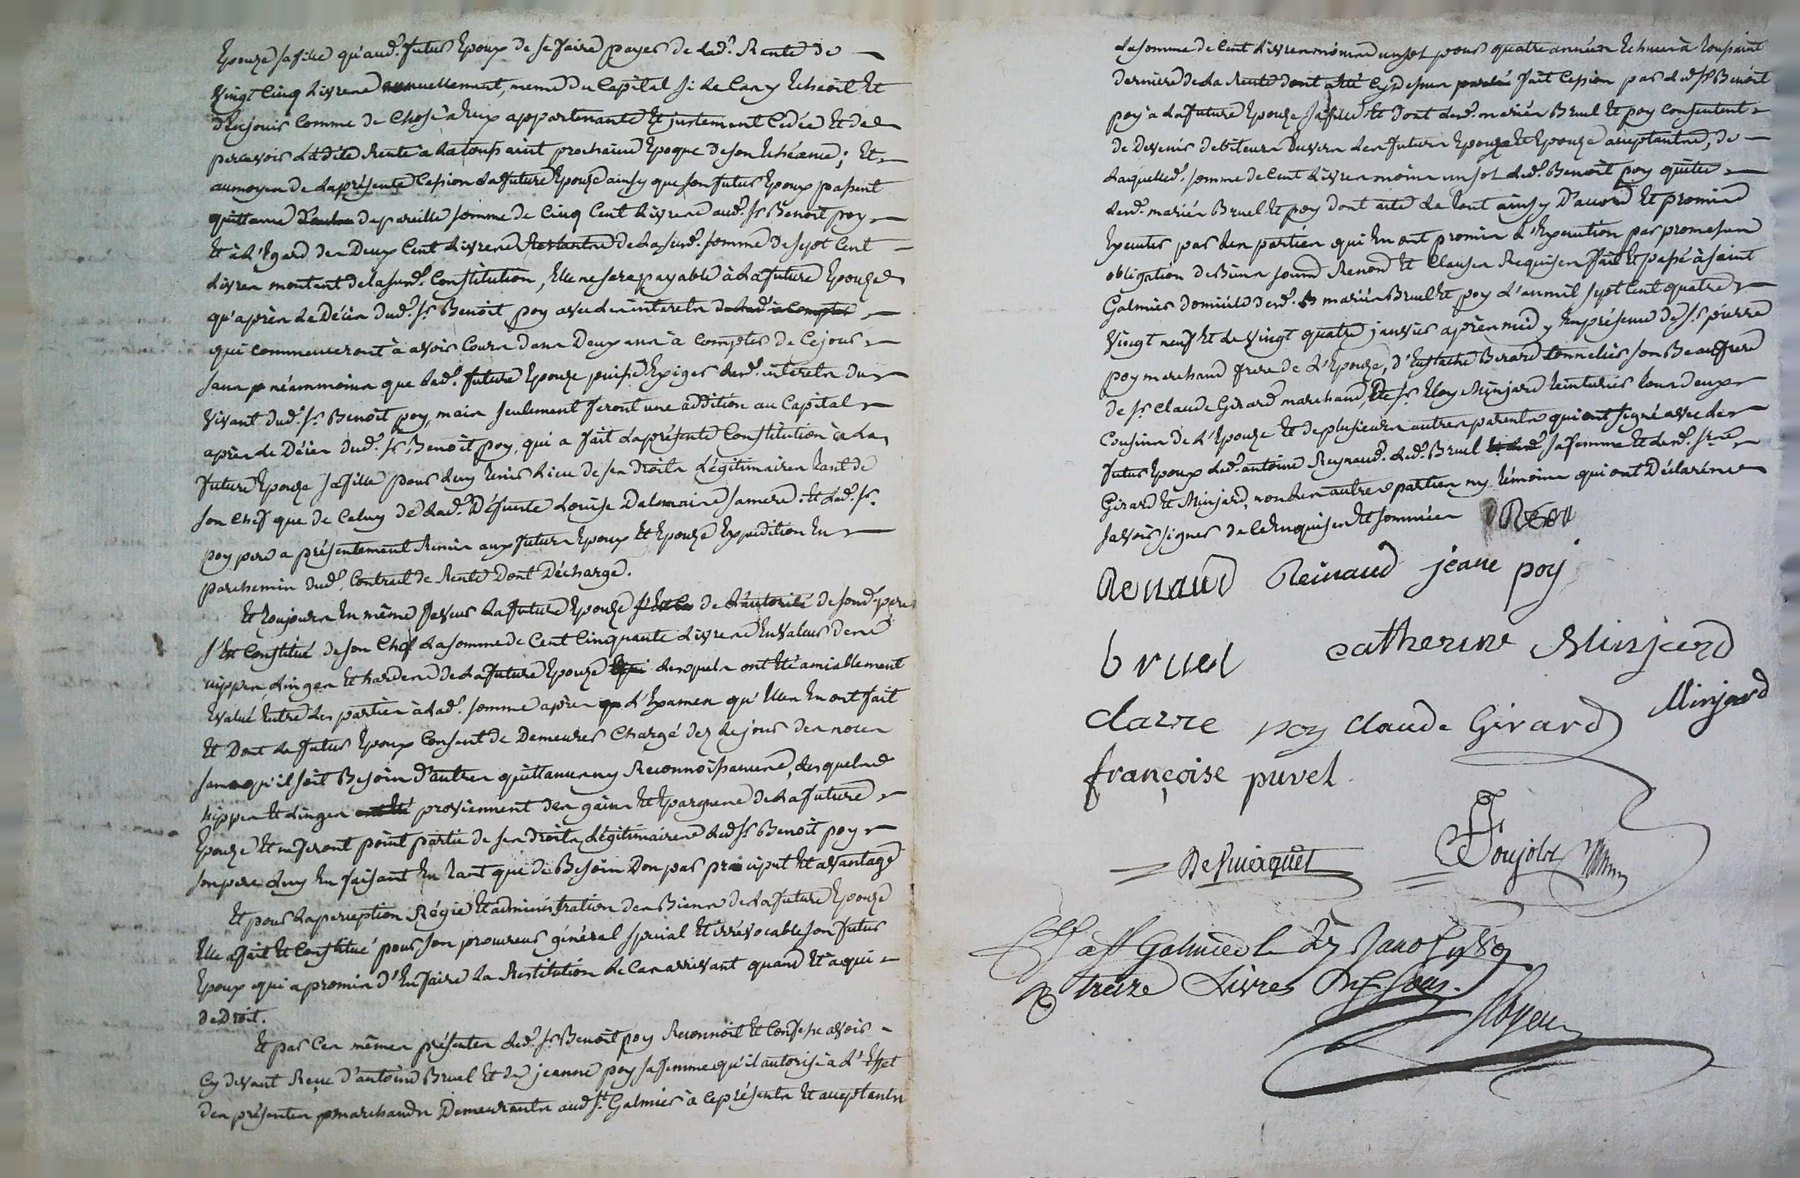 Epouze sa fille qu'aud. futur Epoux de se faire payer de lad. Rente de
Vingt Cinq Livres annuellement, meme du Capital si le Cas y Echeoit Et
d'En jouir Comme de Chose à Eux appartenante Et justement Cedée Et de
percevoir ladite Rente a la toussaint prochaine Epoque de son Echéance; Et
au moyen de la présente Cession la future Epouze ainsy que son futur Epoux passent
quittance de pareille somme de Cinq Cent Livres aud. Sr. Benoit poy
Et à l'Egard des Deux Cent Livres Restantes de la susd. somme de sept Cent
Livres montant de la susd. Constitution, Elle ne sera payable à la future Epouze
qu'après le Décès dud. Sr. Benoit poy avec les interets
qui commenceront à avoir Cours dans Deux ans à compter de Ce jour
sans néammoins que lad. future Epouze puisse Exiger lesd. interets du
Vivant dud. Sr. Benoit poy, mais seulement seront une addition au Capital
après le Décès dud. Sr. Benoit poy, qui a fait la présente Constitution à la
future Epouze sa fille pour luy tenir Lieu de ses droits Légitimaires tant de
son Chef que de Celuy de lad. Défunte Louise Dalmais sa mere: Et led. Sr.
poy pere a présentement Remis aux futurs Epoux Et Epouze Expedition En
parchemin dud. Contrat de Rente Dont Décharge.
Et toujours En même faveur la future Epouze de l'autorité de sond. pere
s'Est Constitué de son Chef la somme de Cent Cinquante Livres En Valeur de
nippes, Linges Et hardes de la future Epouze lesquels ont Eté amiablement
Evalué Entre les parties à lad. somme après l'Examen qu'Elles En ont fait
Et Dont le futur Epoux Consent de Demeurer Chargé dez le jour des noces
sans qu'il soit Besoin d'autres quittances ny Reconnoissances, lesquels
nippes Et Linges proviennent des gains Et Epargnes de la future
Epouze Et ne feront point partie de ses droits Légitimaires led. Sr. Benoit poy
son pere luy En faisant En tant que de Besoin Don par préciput Et avantage
Et pour la perception Régie Et administration des Biens de la future Epouze
Elle a fait Et Constitué pour son procureur général spécial Et irrévocable son futur
Epoux qui a promis d'En faire la Restitution le Cas arrivant quand Et à qui
de Droit.
Et par Ces mêmes présentes led. Sr. Benoit poy Reconnoit Et Confesse avoir
Cy devant Reçu d'antoine Bruel Et de jeanne poy sa femme qu'il autorise à l'Effet
des présentes marchands Demeurants aud. St. Galmier à Ce présents Et acceptants
La somme de Cent Livres moins un sol pour quatre années Echues à toussaint
derniere de la Rente dont a Eté Cy dessus fait Cession par led. Sr. Benoit
poy a la future Epouze sa fille Et dont lesd. mariés Bruel Et poy Consentent
de Devenir debiteurs Envers les futurs Epoux Et Epouze acceptants, de
Laquelle d. somme de Cent Livres moins un sol led. Benoit poy quitte
lesd. mariés Bruel Et poy dont acte le tout ainsy D'accord Et promis
Executer par les parties qui En ont promis l'Execution par promesses
obligation de Biens soumis Renon. Et Clauses Requises fait Et passé à saint
Galmier domicile desd. mariés Bruel Et poy L'an mil sept Cent quatre
Vingt neuf Et le Vingt quatre janvier après midy En présence de Sr. pierre
poy marchand frere de l'Epouze, d'Eustache Berard tonnelier son Beaufrere
de Sr. Claude Girard marchand, Et Sr. Eloy Minjard teinturier tous deux
Cousins de l'Epouze Et de plusieurs autres parents qui ont signé avec le
futur Epoux led. antoine Reynaud. led. Bruel sa femme Et lesd. Srs.
Girard Et Minjard, non les autres parties ny témoins qui ont Déclaré ne
savoir signer de Ce Enquis Et sommés
Renaud Reinaud jeane poy
bruel catherine Minjard
claire poy Claude Girard Minjard
françoise puvel
Ponjolet
à St Galmier le 27 Janv. 1789
treize Livres